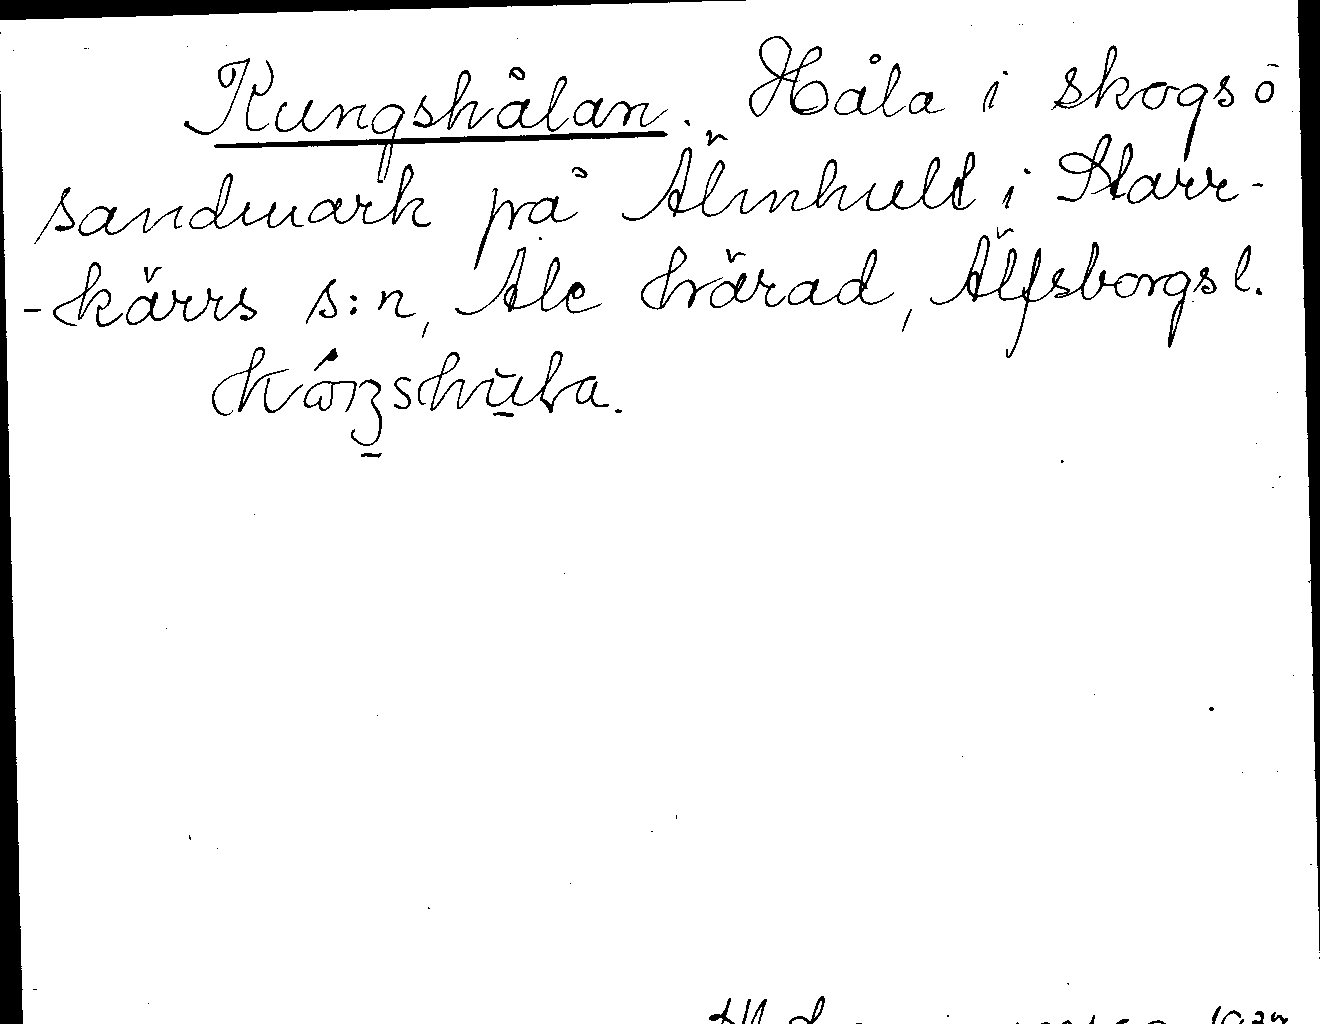 Kungshålan. Håla i skogs o
sandmark på Älmhult i Starr-
-kärrs s:n, Ale härad, Älfsborgs l.